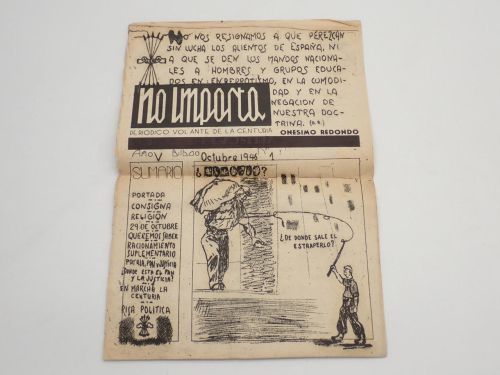 NO NOS RESIGNAMOS A QUE PEREZCAN
SIN LUCHA LOS ALIENTOS DE ESPAÑA, NI
A QUE SE DEN LOS MANDOS NACIONA-
LES A HOMBRES Y GRUPOS EDUCA-
DOS EN EN LA COMODI-
DAD Y EN LA
NEGACION DE
NUESTRA DOC-
TRINA.
no importa
PERIODICO VOLANTE DE LA CENTURIA ONESIMO REDONDO
AÑO V Octubre 1 
SUMARIO
PORTADA
CONSIGNA
RELIGIÓN
29 DE OCTUBRE
QUEREMOS SABER
RACIONAMIENTO
SUPLEMENTARIO
PATRIA, PAN Y JUSTICIA
¿DONDE ESTA EL PAN
Y LA JUSTICIA?
EN MARCHA LA
CENTURIA
RISA POLITICA
¿DE DONDE SALE EL
ESTRAPERLO?